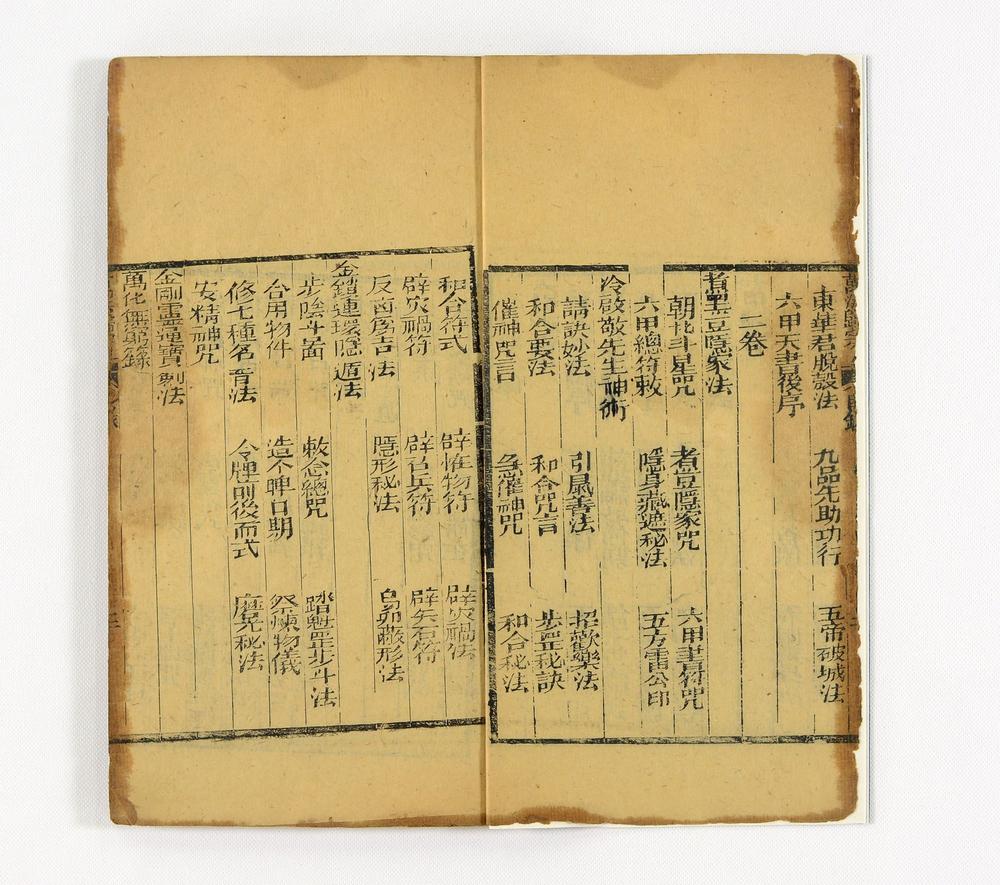 東華君脫殼法 九品先助功行 五帝破城法
六甲天書後序
二卷
煮黑豆隱家法
朝北斗星咒 煮豆隱家咒 六甲書符咒
六甲總符敕 隱身藏遁秘法 五方雷公印
冷啟敬先生神術
請訣妙法 引鼠善法 招歡樂法
和合要法 和合咒言 步罡秘訣
催神咒言 急催神咒 和合秘法
和合符式 辟怪物符 辟火禍法
辟灾禍符 辟召兵符 辟矢石符
反凶爲吉法 隱形秘法 白茆蔽形法
金鎖連環隱遁法
步陰斗啚 敕念總咒 踏魁罡步斗法
合用物件 造令牌日期 祭煉物儀
修七種名香法 令牌前後面式 魔晃秘法
安精神咒
金剛靈通寶劍法